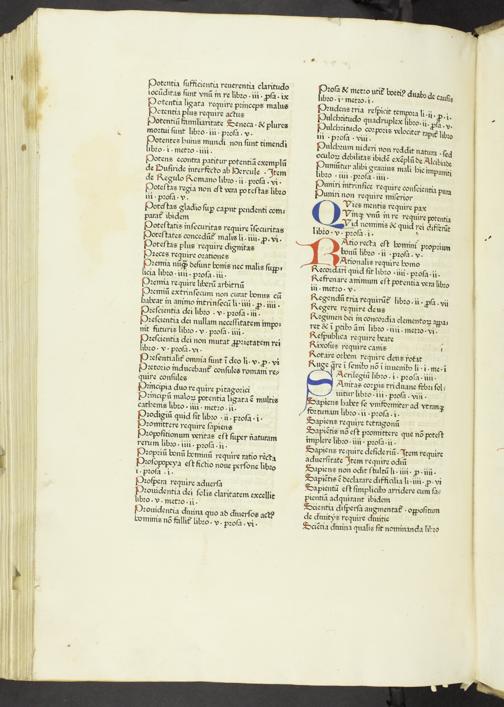 Potentia sufficientia reuerentia claritudo
iocūditas sunt vnū in re libro · iii · psa · ix
Potentia ligata require princeps malus
Potentia plus require actus
Potentiū familiaritate Seneca & plures
mortui sunt libro · iii · prosa · v ·
Potentes huius mundi non sunt timendi
libro · i · metro · iiii ·
Potens econtra patitur potentiā exemplū
de Busiride interfecto ab Hercule · Item
de Regulo Romano libro · ii · prosa · vi ·
Potestas regia non est vera potestas libro
iii · prosa · v ·
Potestas gladio sup caput pendenti com
parat ibidem
Potestatis insecuritas require isecuritas
Potestates concedūt malis li · iiii · p · vi ·
Potestas plus require dignitas
Preces require orationes
Premia nūq desunt bonis nec malis supp
licia libro · iiii · prosa · iii ·
Premia require liberū arbitriū
Premiū extrinsecum non curat bonus cū
habeat in animo intrinsecū li · iiii · p · iiii ·
Prescientia dei libro · v · prosa · iii ·
Prescientia dei nullam necessitatem impo
nit futuris libro · v · prosa · iiii ·
Prescientia dei non mutat pprietatem rei
libro · v · prosa · vi ·
Presentialit omnia sunt i deo li · v · p · vi
Pretorio inducebant consules romani re
quire consules
Principia duo require pitagorici
Principū malor potentia ligata e multis
cathenis libro · iiii · metro · ii ·
Prodigiū quid sit libro · ii · prosa · i ·
Promittere require sapiens
Propositionum veritas est super naturam
rerum libro · iiii · prosa · ii ·
Propriū bonū hominū require ratio rēcta
Prosopopeya est fictio noue persone libro
i · prosa · i ·
Prospera require aduersa
Prouidentia dei solis claritatem excellit
libro · v · metro · ii ·
Prouidentia diuina quo ad diuersos act
homines nō fallit libro · v · prosa · vi ·
Prosa & metro utit boeti duabo de causis
libro · i · metro · i ·
Prudens tria respicit tempora li · ii · p · i ·
Pulchritudo quadruplex libro · ii · psa · v ·
Pulchritudo corporis velociter rapit libro
iii · prosa · viii ·
Pulchrum uideri non reddit natura · sed
oculor debilitas ibidē exēplū de Alcibiade
Puniūtur alibi grauius mali hic impuniti
libro · iiii · prosa · iiii ·
Puniri intrinsice require conscientia praua
Puniri non require miserior
Quies mentis require pax
Quinq vnū in re require potentia
Quid nominis & quid rei differūt
libro · v · prosa · i ·
Ratio recta est homini proprium
bonū libro · ii · prosa · v ·
Rationalis require homo
Recordari quid sit libro · iii · prosa · ii ·
Refrenare animum est potentia vera libro
iii · metro · v ·
Regendū tria requirūt libro · ii · psa · vii
Regere require deus
Regimen dei in concordia elementor appa
ret & i ptibo āni libro · iiii · metro · vi ·
Respublica require beate
Rixosus require canis
Rotare orbem require deus rotat
Ruge qre i sembo nō i iuuenibo li · i · me · i
Sacrilegiū libro · i · prosa · iiii ·
Sanitas corporis triduane febri sol
uitur libro · iii · prosa · viii ·
Sapiens habet se vniformiter ad vtramq
fortunam libro · ii · prosa · i ·
Sapiens require tetragonū
Sapiētis nō est promittere que nō potest
implere libro · iiii · prosa · ii ·
Sapiens require desideriū · Item require
aduersitate Item require odiū
Sapiens non odit stultū li · iiii · p · iiii ·
Sapiētis e declarare difficilia li · iiii · p · vi
Sapientiū est simplicibo arridere cum sa
pientiā adquirant ibidem
Scientia dispersa augmentat · oppositum
de diuitijs require diuitie
Sciētia diuina qualis sit nominanda libro